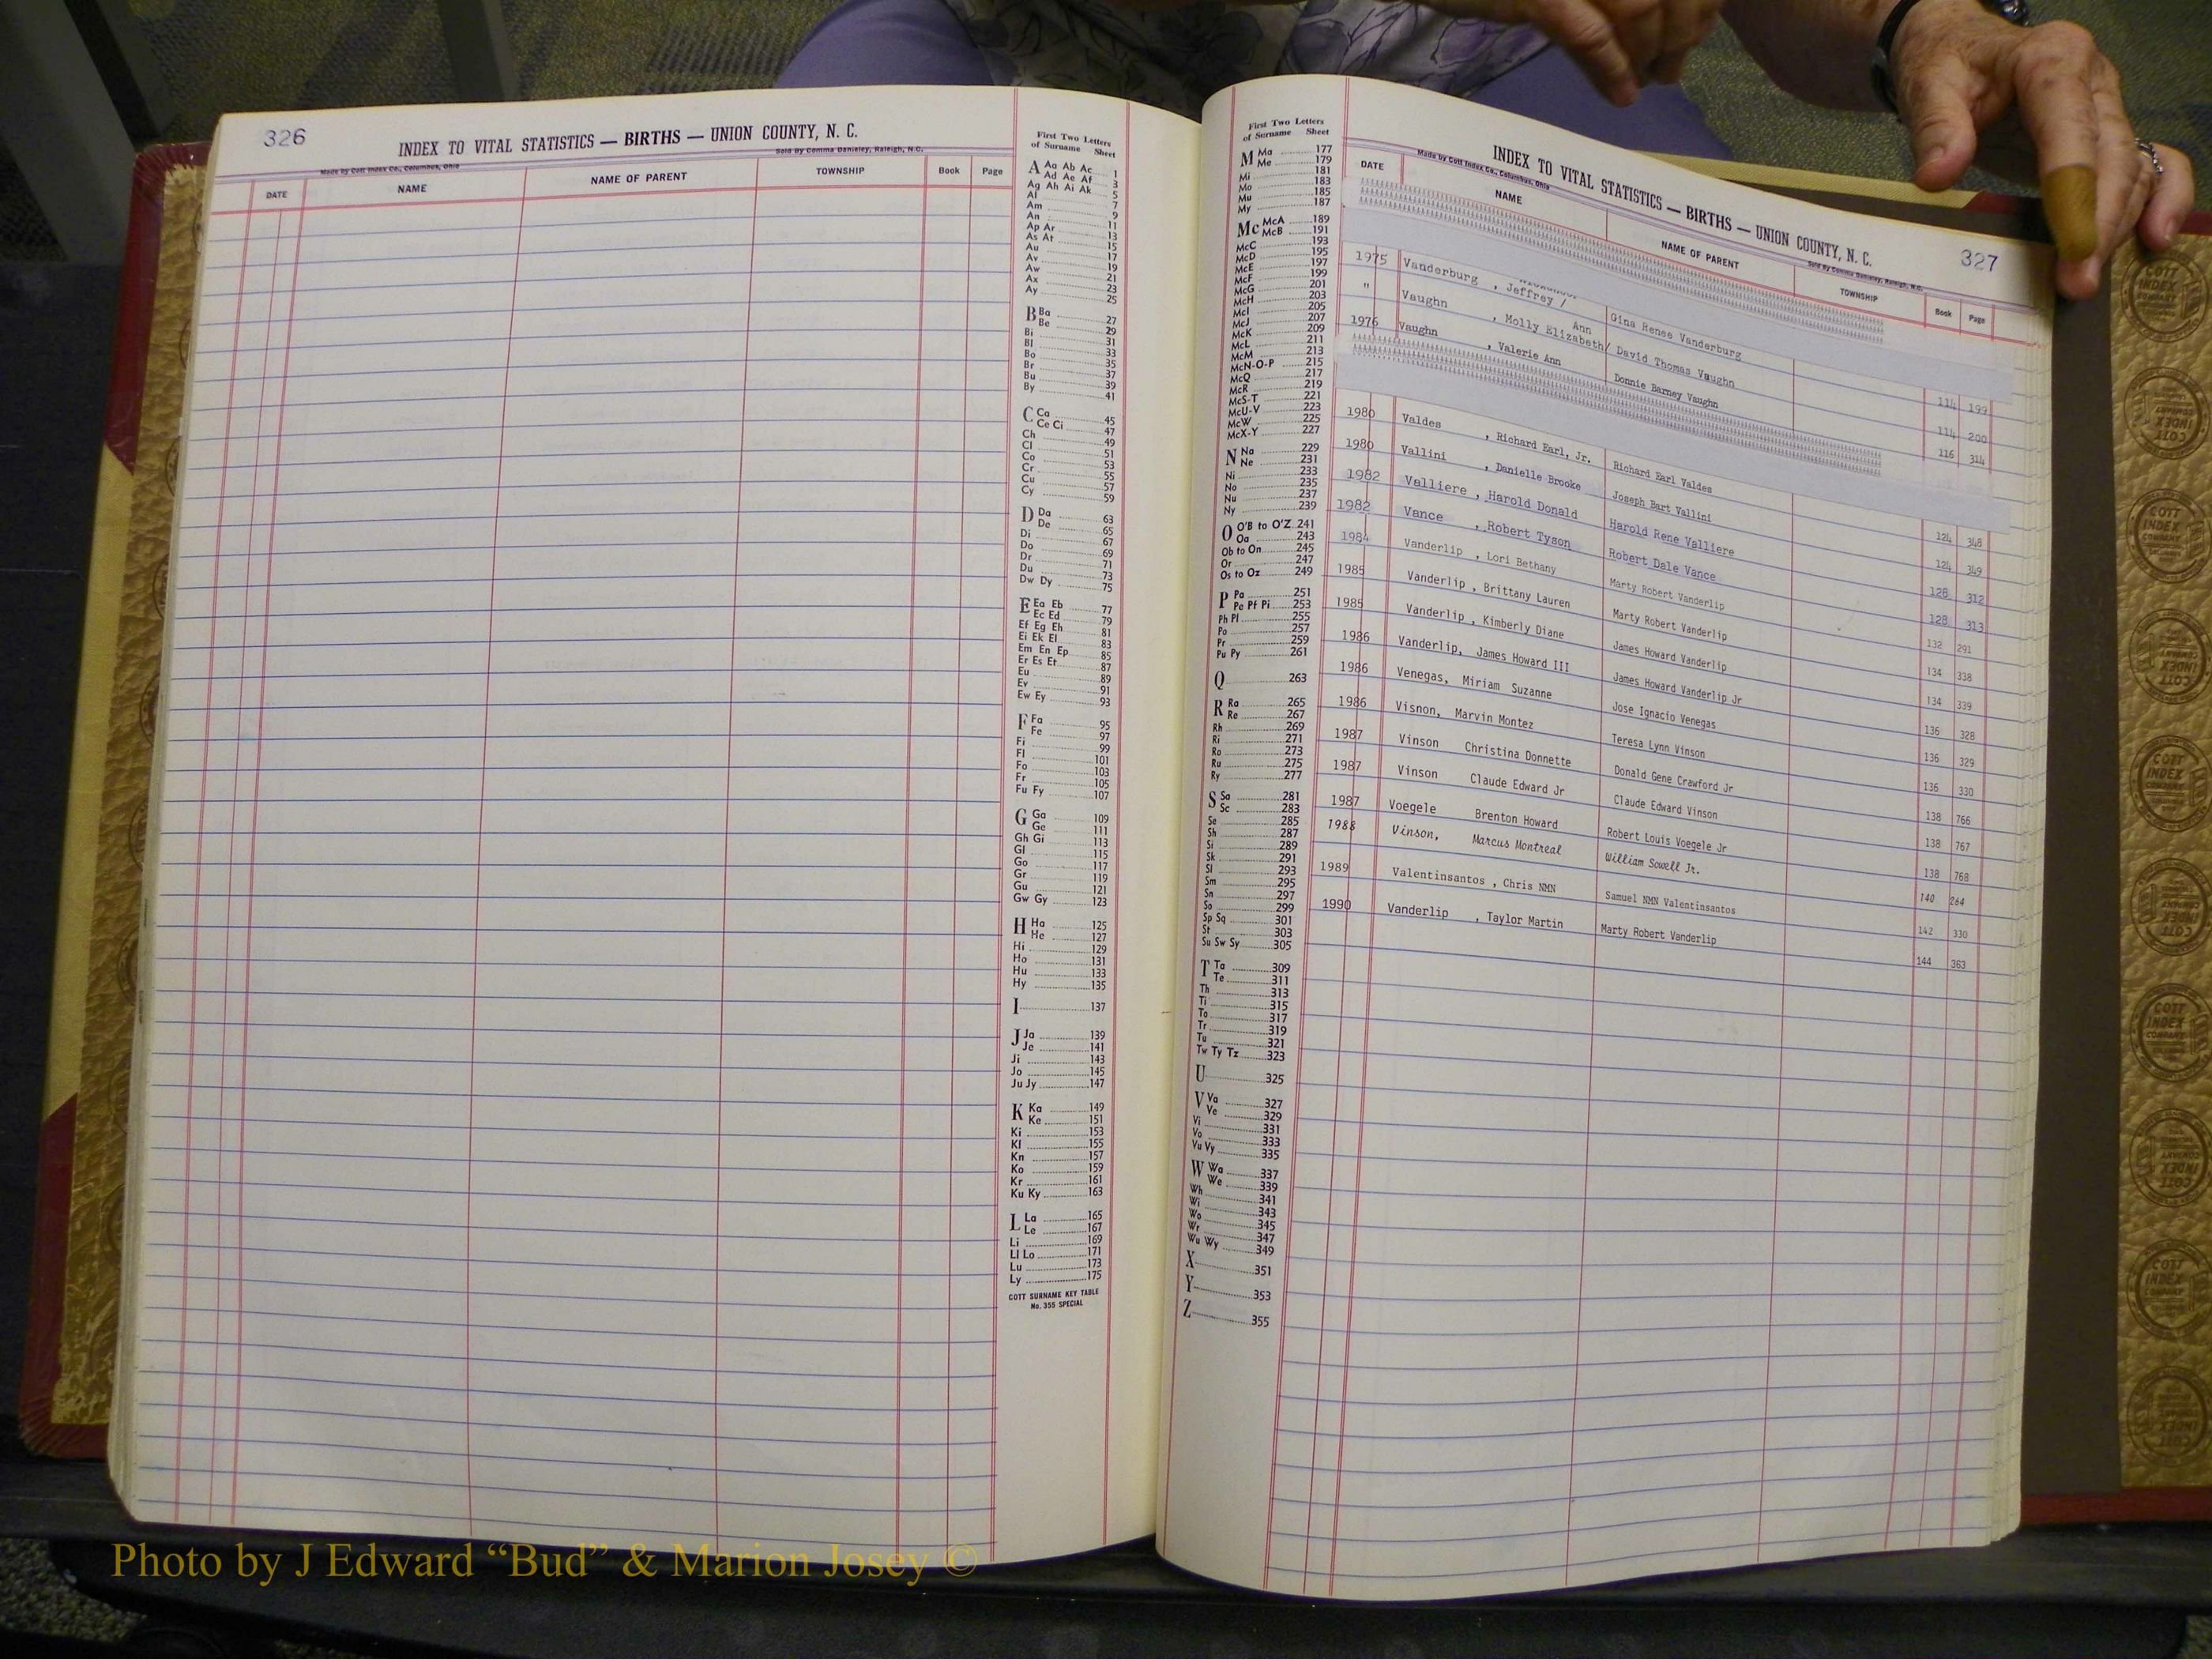 326
INDEX TO VITAL STATISTICS — BIRTHS — UNION COUNTY, N. C.
Made by Cott Index Co., Columbus, Ohio
Sold By Comma Danieley, Raleigh, N.C.
DATE NAME NAME OF PARENT TOWNSHIP Book Page
First Two Letters
of Surname Sheet
A Aa Ab Ac 1
Ad Ae Af 3
Ag Ah Ai Ak 5
Al 7
Am 9
An 11
Ap Ar 13
As At 15
Au 17
Av 19
Aw 21
Ax 23
Ay 25
B Ba 27
Be 29
Bi 31
Bl 33
Bo 35
Br 37
Bu 39
By 41
C Ca 45
Ce Ci 47
Ch 49
Cl 51
Co 53
Cr 55
Cu 57
Cy 59
D Da 63
De 65
Di 67
Do 69
Dr 71
Du 73
Dw Dy 75
E Ea Eb 77
Ec Ed 79
Ef Eg Eh 81
Ei Ek El 83
Em En Ep 85
Er Es Et 87
Eu 89
Ev 91
Ew Ey 93
F Fa 95
Fe 97
Fi 99
Fl 101
Fo 103
Fr 105
Fu Fy 107
G Ga 109
Ge 111
Gh Gi 113
Gl 115
Go 117
Gr 119
Gu 121
Gw Gy 123
H Ha 125
He 127
Hi 129
Ho 131
Hu 133
Hy 135
I 137
J Ja 139
Je 141
Ji 143
Jo 145
Ju Jy 147
K Ka 149
Ke 151
Ki 153
Kl 155
Kn 157
Ko 159
Kr 161
Ku Ky 163
L La 165
Le 167
Li 169
Ll Lo 171
Lu 173
Ly 175
COTT SURNAME KEY TABLE
No. 355 SPECIAL
First Two Letters
of Surname Sheet
M Ma 177
Me 179
Mi 181
Mo 183
Mu 185
My 187
Mc McA 189
McB 191
McC 193
McD 195
McE 197
McF 199
McG 201
McH 203
McI 205
McJ 207
McK 209
McL 211
McM 213
McN-O-P 215
McQ 217
McR 219
McS-T 221
McU-V 223
McW 225
McX-Y 227
N Na 229
Ne 231
Ni 233
No 235
Nu 237
Ny 239
O O'B to O'Z 241
Oa 243
Ob to On 245
Or 247
Os to Oz 249
P Pa 251
Pe Pf Pi 253
Ph Pl 255
Po 257
Pr 259
Pu Py 261
Q 263
R Ra 265
Re 267
Rh 269
Ri 271
Ro 273
Ru 275
Ry 277
S Sa 281
Sc 283
Se 285
Sh 287
Si 289
Sk 291
Sl 293
Sm 295
Sn 297
So 299
Sp Sq 301
St 303
Su Sw Sy 305
T Ta 309
Te 311
Th 313
Ti 315
To 317
Tr 319
Tu 321
Tw Ty Tz 323
U 325
V Va 327
Ve 329
Vi 331
Vo 333
Vu Vy 335
W Wa 337
We 339
Wh 341
Wi 343
Wo 345
Wr 347
Wu Wy 349
X 351
Y 353
Z 355
327
INDEX TO VITAL STATISTICS — BIRTHS — UNION COUNTY, N. C.
Made by Cott Index Co., Columbus, Ohio
Sold By Comma Danieley, Raleigh, N.C.
DATE NAME NAME OF PARENT TOWNSHIP Book Page
1975 Vanderburg , Jeffrey / Gina Renee Vanderburg 114 199
" Vaughn , Molly Elizabeth/ Ann David Thomas Vaughn 114 200
1976 Vaughn , Valerie Ann Donnie Barney Vaughn 116 314
1980 Valdes , Richard Earl, Jr. Richard Earl Valdes 124 348
1980 Vallini , Danielle Brooke Joseph Bart Vallini 124 349
1982 Valliere , Harold Donald Harold Rene Valliere 128 312
1982 Vance , Robert Tyson Robert Dale Vance 128 313
1984 Vanderlip , Lori Bethany Marty Robert Vanderlip 132 291
1985 Vanderlip , Brittany Lauren Marty Robert Vanderlip 134 338
1985 Vanderlip , Kimberly Diane James Howard Vanderlip 134 339
1986 Vanderlip, James Howard III James Howard Vanderlip Jr 136 328
1986 Venegas, Miriam Suzanne Jose Ignacio Venegas 136 329
1986 Visnon, Marvin Montez Teresa Lynn Vinson 136 330
1987 Vinson Christina Donnette Donald Gene Crawford Jr 138 766
1987 Vinson Claude Edward Jr Claude Edward Vinson 138 767
1987 Voegele Brenton Howard Robert Louis Voegele Jr 138 768
1988 Vinson, Marcus Montreal William Sowell Jr. 140 264
1989 Valentinsantos , Chris NMN Samuel NMN Valentinsantos 142 330
1990 Vanderlip , Taylor Martin Marty Robert Vanderlip 144 363
COTT INDEX COMPANY
Photo by J Edward “Bud” & Marion Josey ©